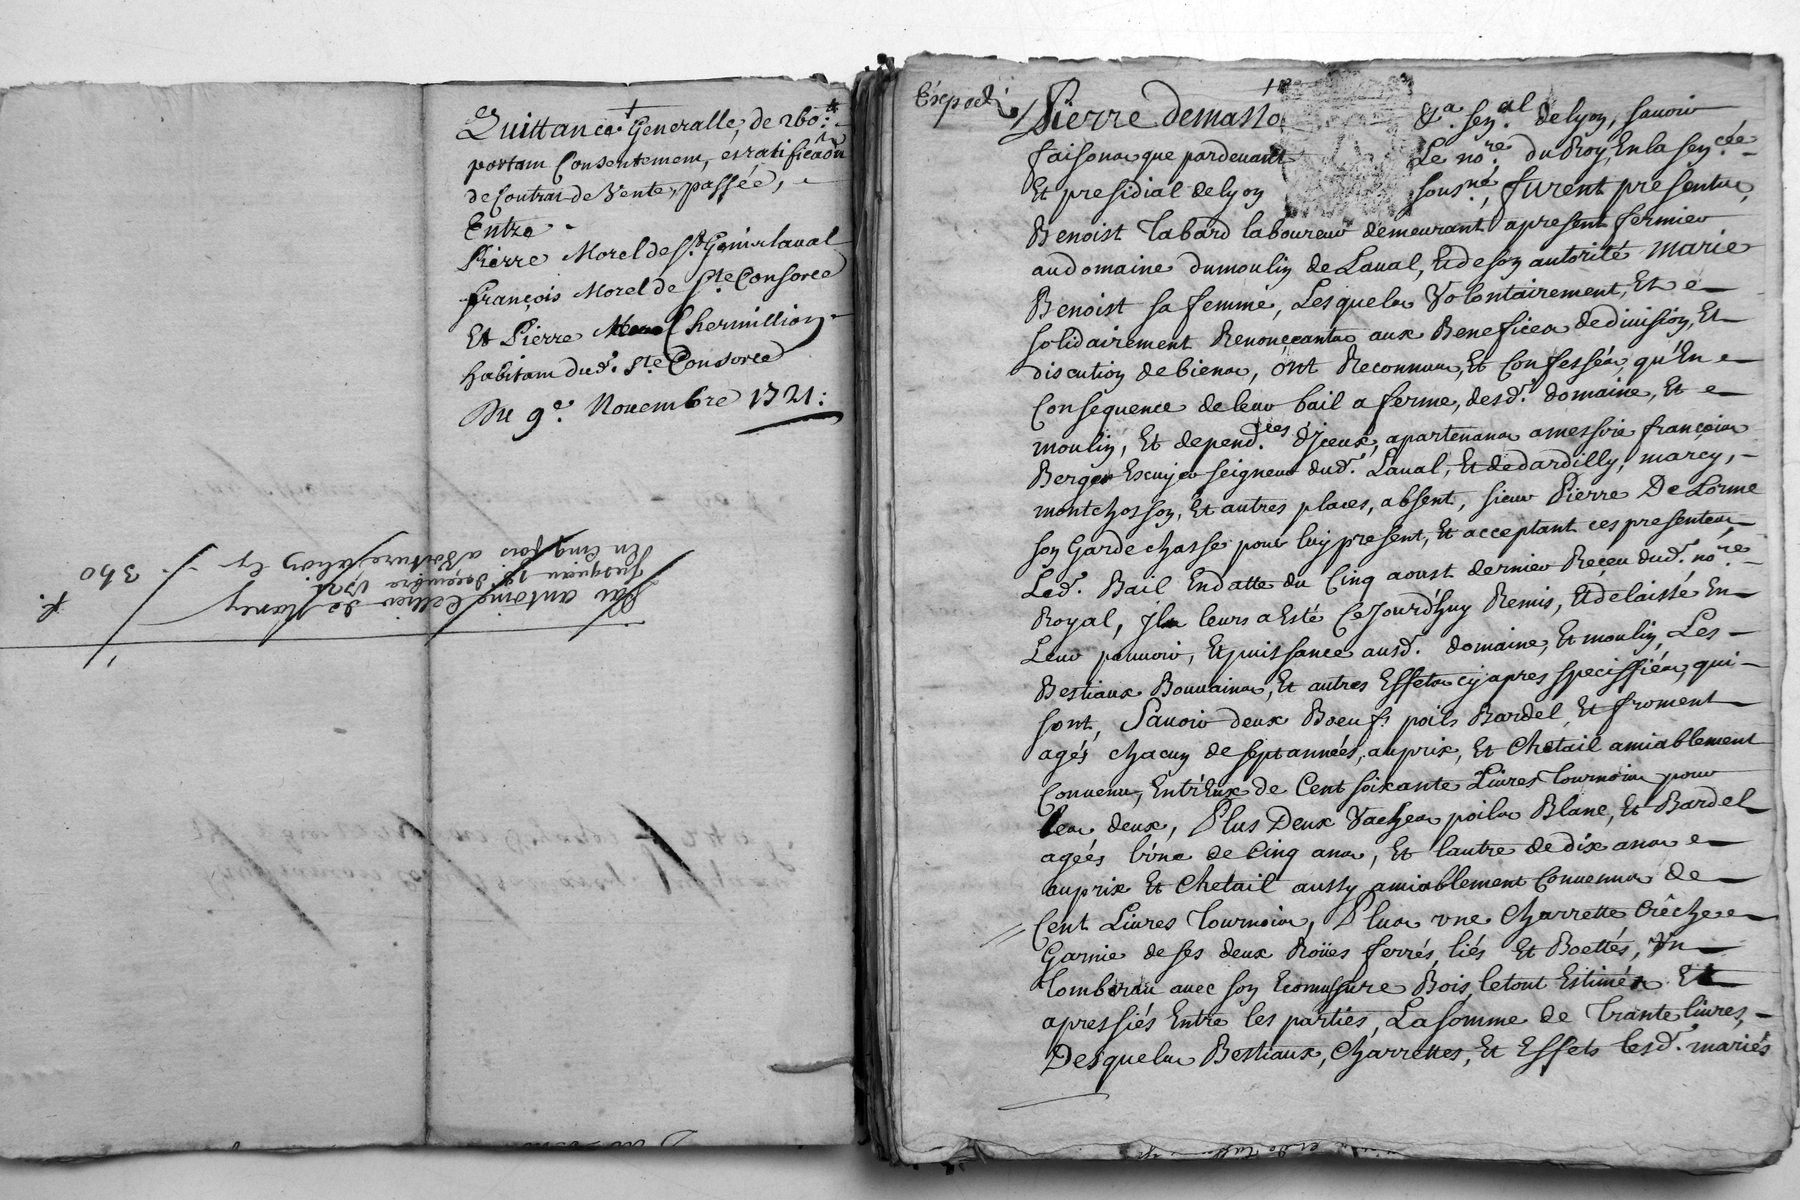 Quittance Generalle, de 260.#
portant Consentement, et ratification
de Contrat de Vente, passée,
Entre
Pierre Morel de St. Genis laval
françois Morel de Ste Consorce
Et Pierre Chermillion
habitant dud. Ste Consorce
Du 9e. Novembre 1721:
Par antoine Cellier de Marcy
jusqu'au 18 decembre 1721
En Cinq fois
340
Expedié
Pierre demasso &a. senal. de lyon, savoir
faisons que pardevant Le nore. du Roy, En la sencée
Et presidial de lyon sousné, furent presents
Benoist Tabard laboureur demeurant apresent fermier
au domaine du moulin de Laval, Et de son autorité Marie
Benoist sa femme, Lesquels Volontairement, Et
solidairement Renonçants aux Benefices de division, Et
discution de biens, ont Reconnus, Et Confessés, qu'En
Consequence de leur bail a ferme, desd. domaine, Et
moulin, Et depend.ces d'Iceux, apartenans a messire françois
Berger Escuyer seigneur dud. Laval, Et de dardilly, marcy,
montchosson, Et autres places, absent, sieur Pierre De Lorme
son Garde chasse pour luy present, Et acceptant ces presentes,
Led. Bail En datte du Cinq aoust dernier Reçeu dud. nore.
Royal, Ils leurs a Esté Cejourd'huy Remis, Et delaissé En
Leur pouvoir, Et puissance ausd. domaine, Et moulin, Les
Bestiaux Bouvains, Et autres Effets cy apres speciffiés, qui
sont, Savoir deux Boeufs poils Bardel, Et froment
agés chacun de sept années, au prix, Et Chetail amiablement
Convenu, Entr'Eux de Cent soixante Livres Tournois pour
les deux, Plus Deux Vaches poils Blanc, Et Bardel
agéés l'une de Cinq ans, Et lautre de dix ans
au prix Et Chetail aussy amiablement Convenus de
Cent Livres Tournois, Plus une Charrette Crêche
Garnie de ses deux Roües ferrés, liés Et Boettés, Un
Tombereau avec son Ecomassure Bois, le tout Estimés Et
apressiés Entre les partiés, La somme de Trante livres,
Desquels Bestiaux, Charrettes, Et Effets lesd. mariés